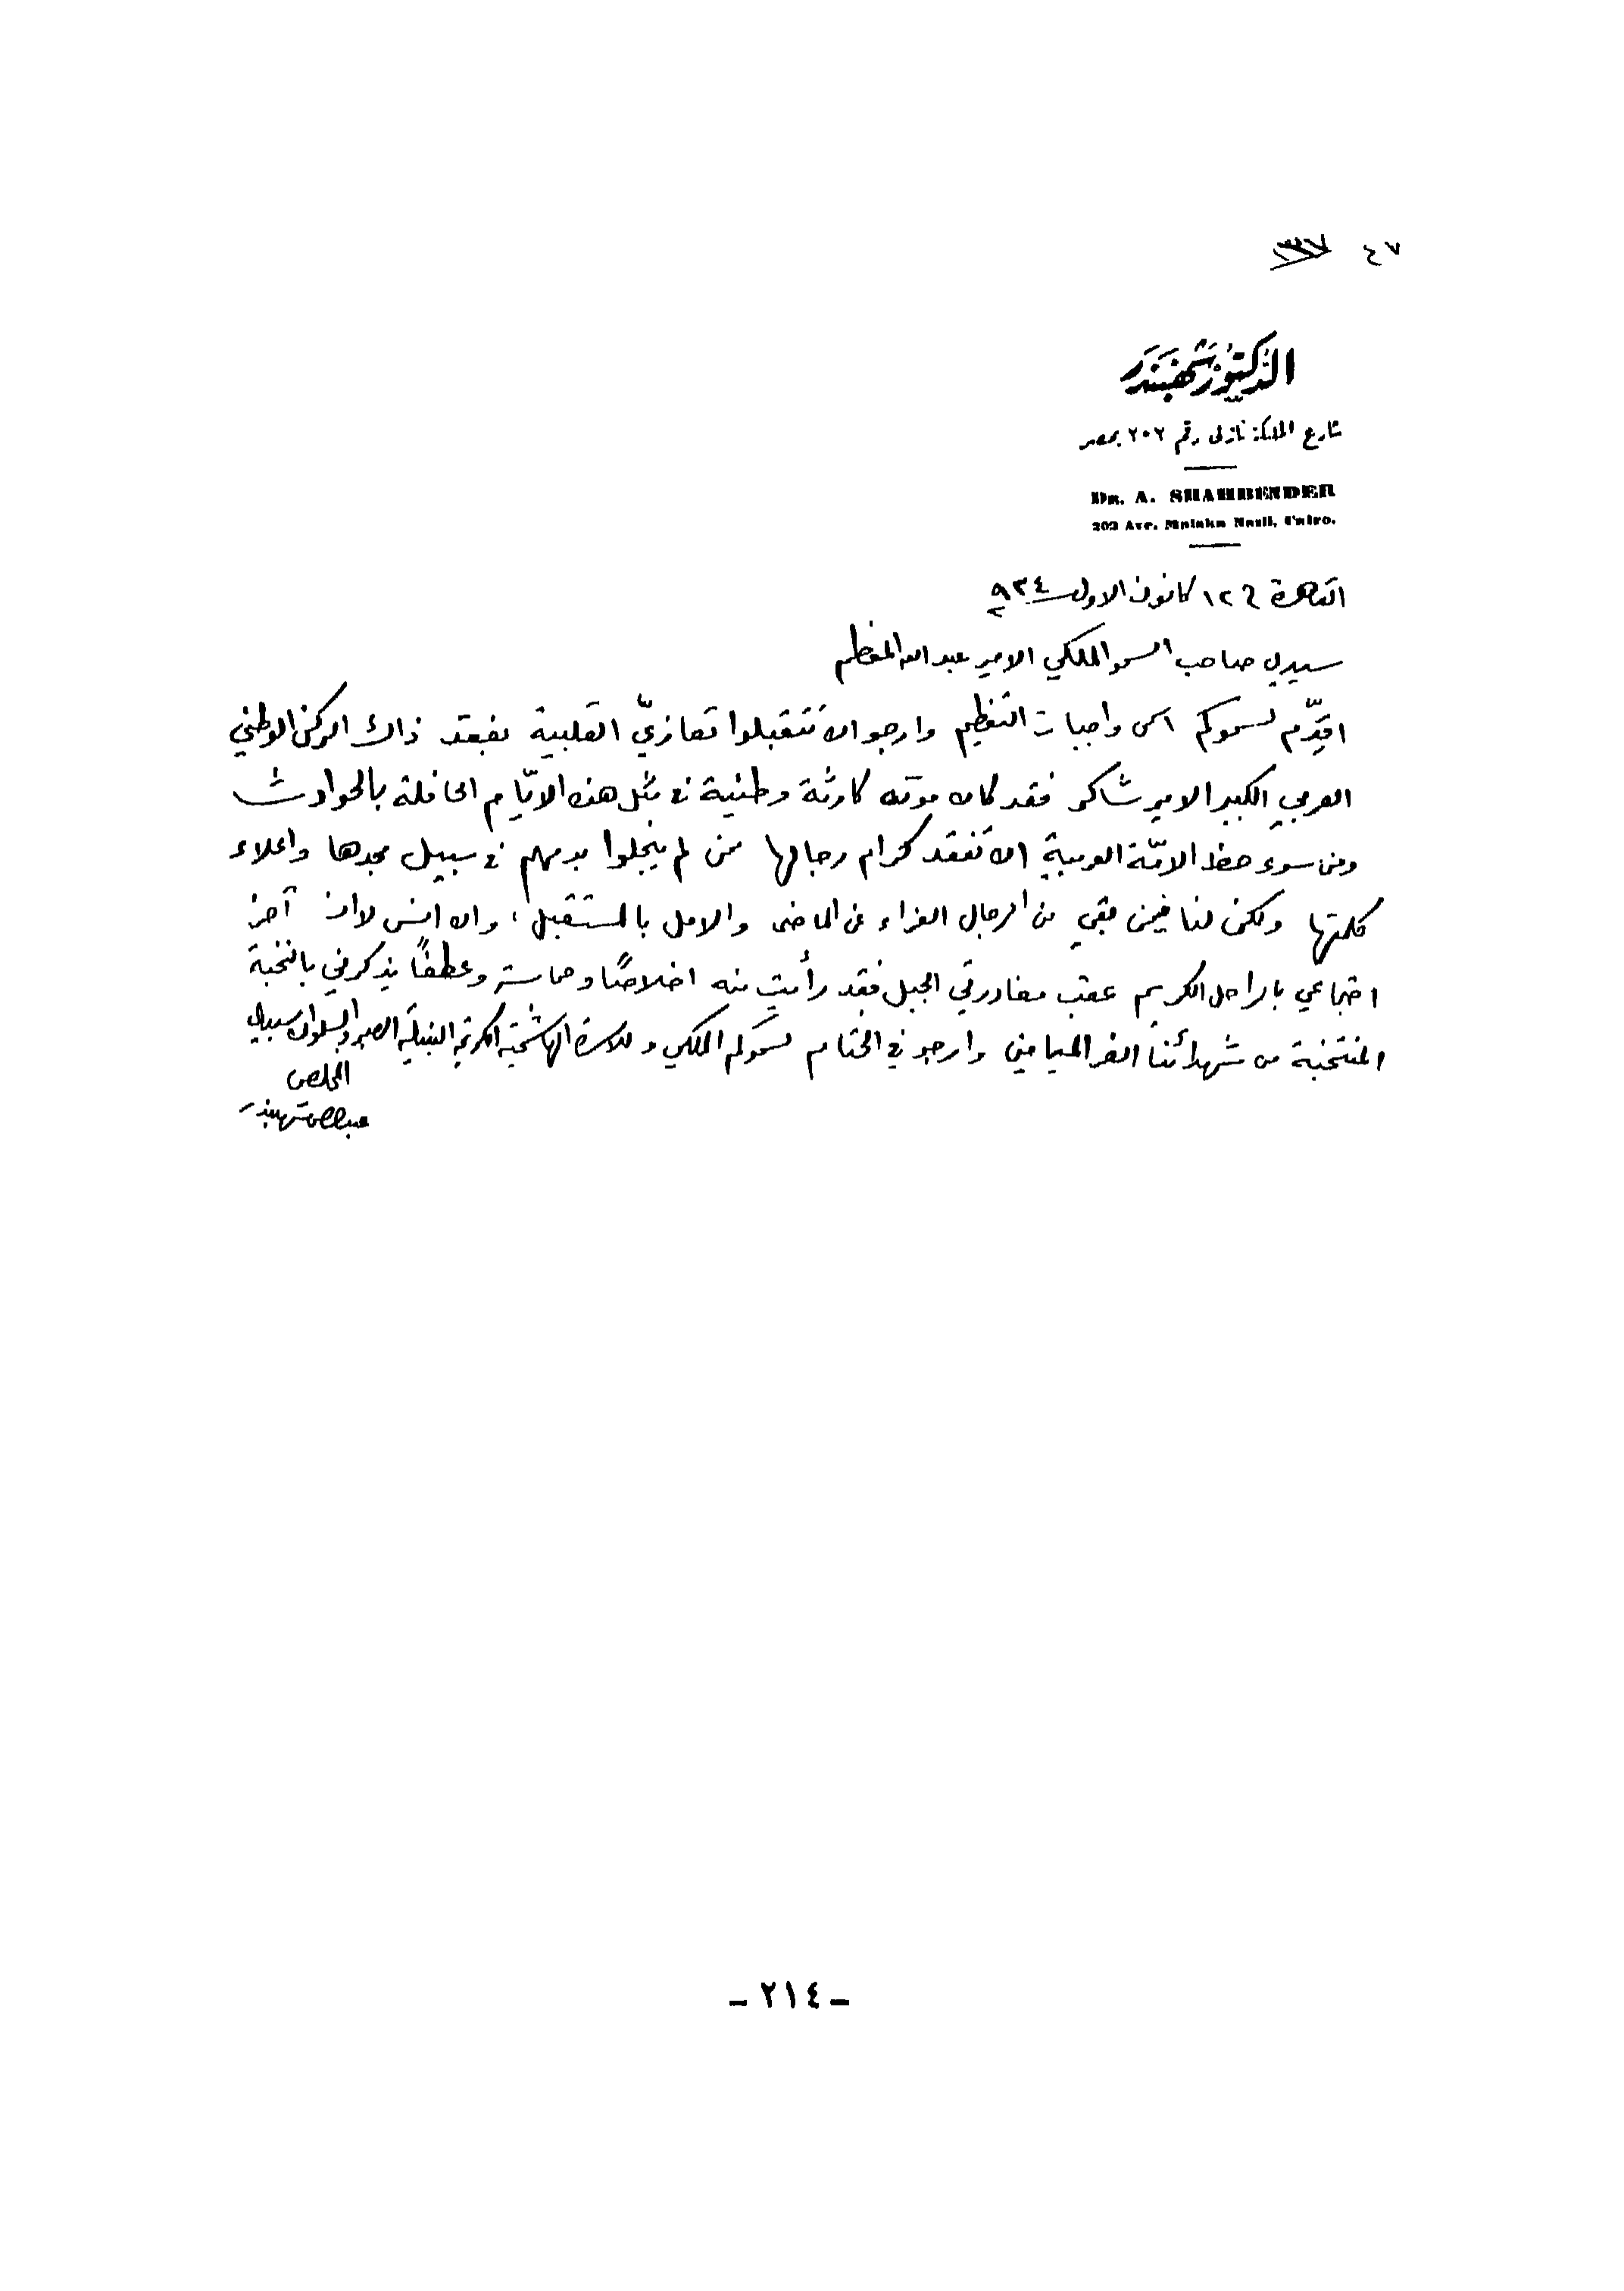 ٤٧
الدكتور شهبندر
شارع الملكة نازلى رقم ٢٠٢ بمصر
DR. A. SHAHBENDER
202 Ave. Malaka Nazli, Cairo.
القاهرة في ١٢ كانون الاول ٩٣٤
سيدي صاحب السمو الملكي الامير عبد الله المعظم
اقدِّم لسموكم اسمى واجبات التعظيم وارجو ان تتقبلوا تعازيّ القلبية بفقد ذاك الركن الوطني
العربي الكبير الامير شاكر فقد كان موته كارثة وطنية في مثل هذه الايّام الحافلة بالحوادث
ومن سوء حظ الامّة العربية ان تفقد كرام رجالها ممن لم يبخلوا بدمهم في سبيل مجدها واعلاء
كلمتها ولكن لنا فيمن بقي من الرجال العزاء عن الماضى والامل بالمستقبل، وان انس لا انسَ آخر
اجتماعي بالراحل الكريم عقب مغادرتي الجبل فقد رأيت منه اخلاصًا وحماسة وعطفًا يذكرني بالنخبة
المنتخبة من شهدائنا الغر الميامين وارجو في الختام لسموكم الملكي وللاسرة الهاشمية الكريمة النبيلة الصبر والسلوان سيدي
المخلص
عبد الرحمن شهبندر
- ٢١٤ -